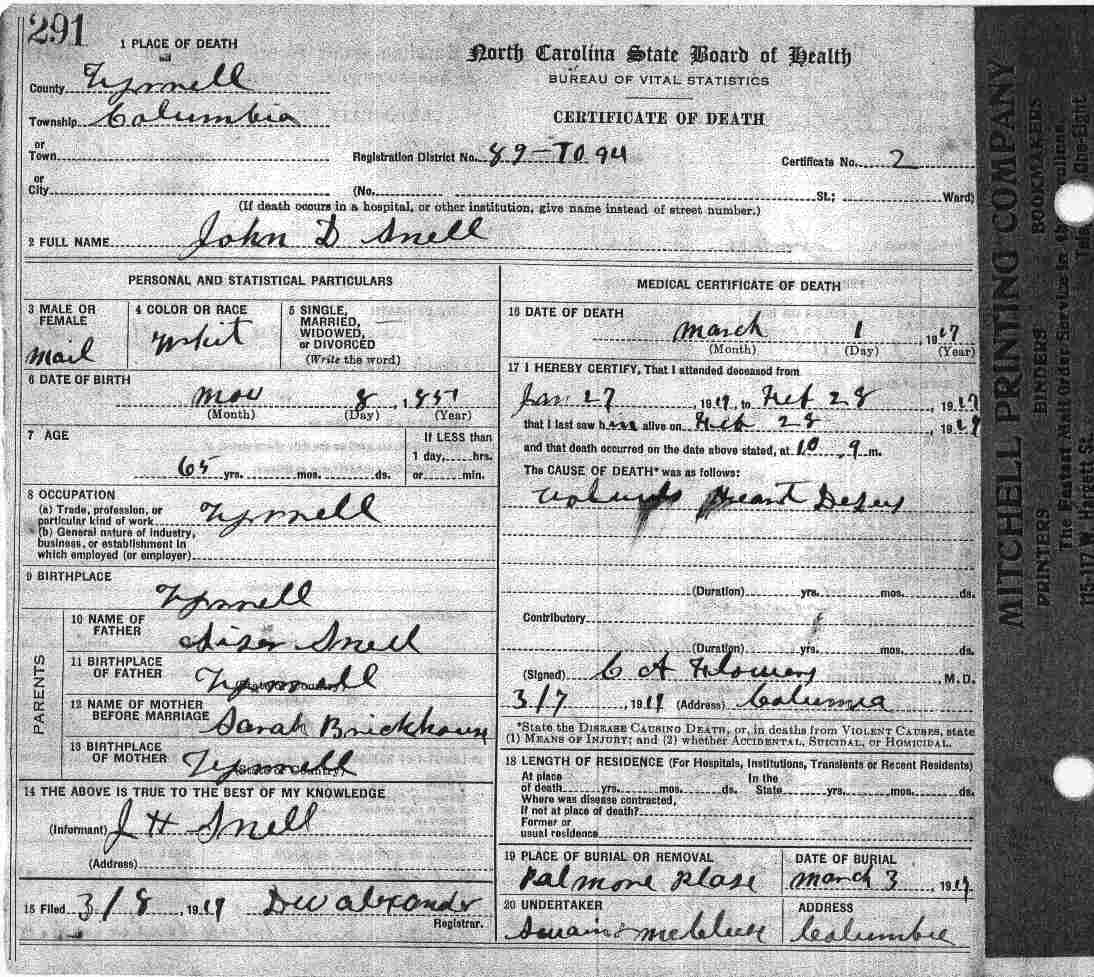 291
1 PLACE OF DEATH
North Carolina State Board of Health
BUREAU OF VITAL STATISTICS
CERTIFICATE OF DEATH
County Tyrrell
Township Columbia
or Town
Registration District No. 89-7094
Certificate No. 2
or City (No. St.; Ward)
(If death occurs in a hospital, or other institution, give name instead of street number.)
2 FULL NAME John D Snell
PERSONAL AND STATISTICAL PARTICULARS
3 MALE OR FEMALE
mail
4 COLOR OR RACE
Whit
5 SINGLE, MARRIED, WIDOWED, or DIVORCED
(Write the word)
6 DATE OF BIRTH
8, 185
(Month) (Day) (Year)
7 AGE
65 yrs. mos. ds.
If LESS than
1 day, hrs.
or min.
8 OCCUPATION
(a) Trade, profession, or
particular kind of work Tyrrell
(b) General nature of industry,
business, or establishment in
which employed (or employer)
9 BIRTHPLACE
Tyrrell
PARENTS
10 NAME OF FATHER
Snell
11 BIRTHPLACE OF FATHER
Tyrrell
12 NAME OF MOTHER BEFORE MARRIAGE
Sarah Brickhous
13 BIRTHPLACE OF MOTHER
Tyrrell
(State or Country)
14 THE ABOVE IS TRUE TO THE BEST OF MY KNOWLEDGE
(Informant) J H Snell
(Address)
15 Filed 3/8, 1919 DW alexander
Registrar.
MEDICAL CERTIFICATE OF DEATH
16 DATE OF DEATH
March 1, 19
(Month) (Day) (Year)
17 I HEREBY CERTIFY, That I attended deceased from
Jan 27, 1919, to Feb 28, 19
that I last saw him alive on Feb 28, 1919
and that death occurred on the date above stated, at 10 m.
The CAUSE OF DEATH* was as follows:
Heart
(Duration) yrs. mos. ds.
Contributory
(Duration) yrs. mos. ds.
(Signed) C A Flowers, M. D.
3/7, 1919 (Address) Columia
*State the DISEASE CAUSING DEATH, or, in deaths from VIOLENT CAUSES, state
(1) MEANS OF INJURY; and (2) whether ACCIDENTAL, SUICIDAL, or HOMICIDAL.
18 LENGTH OF RESIDENCE (For Hospitals, Institutions, Transients or Recent Residents)
At place of death yrs. mos. ds. In the State yrs. mos. ds.
Where was disease contracted,
If not at place of death?
Former or
usual residence
19 PLACE OF BURIAL OR REMOVAL
Palmore Plase
DATE OF BURIAL
March 3, 1919
20 UNDERTAKER
Swain &
ADDRESS
Columbia
MITCHELL PRINTING COMPANY
PRINTERS BINDERS BOOKMAKERS
The Fastest Mail Order Service in the
115-117 W. Hargett St.